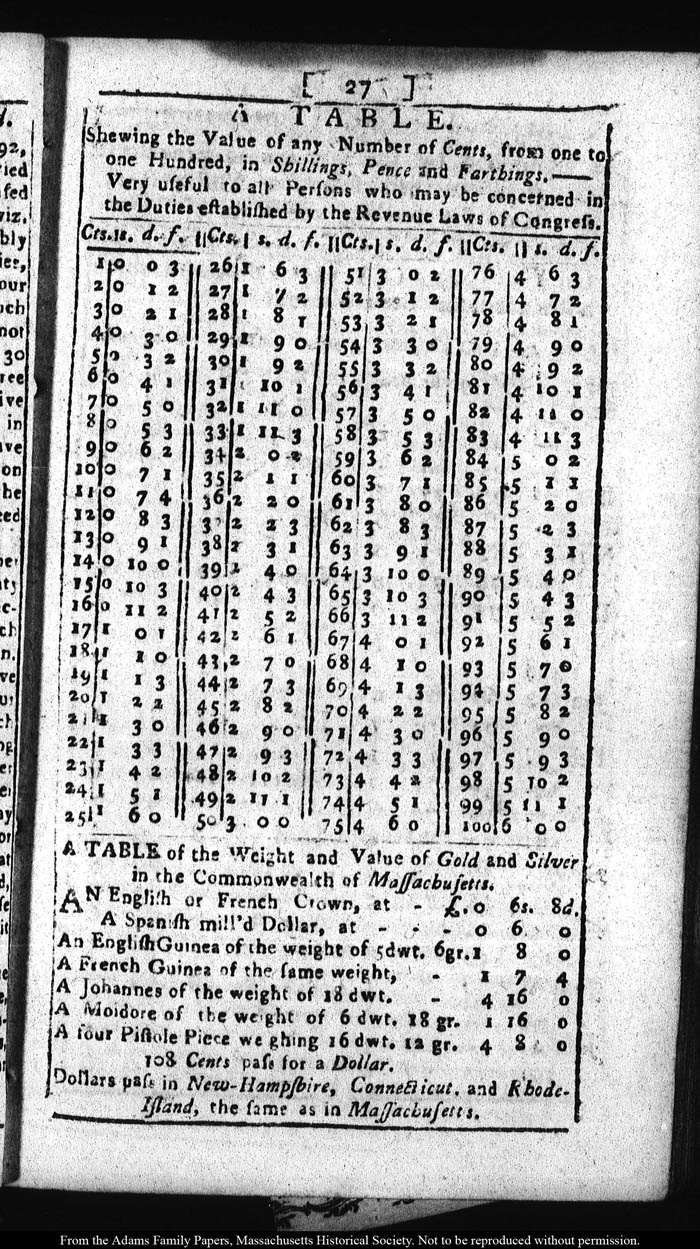 [ 27 ]
A TABLE.
Shewing the Value of any Number of Cents, from one to
one Hundred, in Shillings, Pence and Farthings.—
Very uſeful to all Perſons who may be concerned in
the Duties eſtabliſhed by the Revenue Laws of Congreſs.
Cts. s. d. f. || Cts. | s. d. f. || Cts. | s. d. f. || Cts. || s. d. f.
1 0 0 3 26 1 6 3 51 3 0 2 76 4 6 3
2 0 1 2 27 1 7 2 52 3 1 2 77 4 7 2
3 0 2 1 28 1 8 1 53 3 2 1 78 4 8 1
4 0 3 0 29 1 9 0 54 3 3 0 79 4 9 0
5 0 3 2 30 1 9 2 55 3 3 2 80 4 9 2
6 0 4 1 31 1 10 1 56 3 4 1 81 4 10 1
7 0 5 0 32 1 11 0 57 3 5 0 82 4 11 0
8 0 5 3 33 1 11 3 58 3 5 3 83 4 11 3
9 0 6 2 34 2 0 2 59 3 6 2 84 5 0 2
10 0 7 1 35 2 1 1 60 3 7 1 85 5 1 1
11 0 7 4 36 2 2 0 61 3 8 0 86 5 2 0
12 0 8 3 37 2 2 3 62 3 8 3 87 5 2 3
13 0 9 1 38 2 3 1 63 3 9 1 88 5 3 1
14 0 10 0 39 2 4 0 64 3 10 0 89 5 4 0
15 0 10 3 40 2 4 3 65 3 10 3 90 5 4 3
16 0 11 2 41 2 5 2 66 3 11 2 91 5 5 2
17 1 0 1 42 2 6 1 67 4 0 1 92 5 6 1
18 1 1 0 43 2 7 0 68 4 1 0 93 5 7 0
19 1 1 3 44 2 7 3 69 4 1 3 94 5 7 3
20 1 2 2 45 2 8 2 70 4 2 2 95 5 8 2
21 1 3 0 46 2 9 0 71 4 3 0 96 5 9 0
22 1 3 3 47 2 9 3 72 4 3 3 97 5 9 3
23 1 4 2 48 2 10 2 73 4 4 2 98 5 10 2
24 1 5 1 49 2 11 1 74 4 5 1 99 5 11 1
25 1 6 0 50 3 0 0 75 4 6 0 100 6 0 0
A TABLE of the Weight and Value of Gold and Silver
in the Commonwealth of Maſſachuſetts.
AN Engliſh or French Crown, at - £.0 6s. 8d.
A Spaniſh mill'd Dollar, at - - - 0 6 0
An Engliſh Guinea of the weight of 5dwt. 6gr. 1 8 0
A French Guinea of the ſame weight, - 1 7 4
A Johannes of the weight of 18 dwt. - 4 16 0
A Moidore of the weight of 6 dwt. 18 gr. 1 16 0
A four Piſtole Piece we ghing 16 dwt. 12 gr. 4 8 0
108 Cents paſs for a Dollar.
Dollars paſs in New-Hampſhire, Connecticut, and Rhode-
Iſland, the ſame as in Maſſachuſetts.
From the Adams Family Papers, Massachusetts Historical Society. Not to be reproduced without permission.